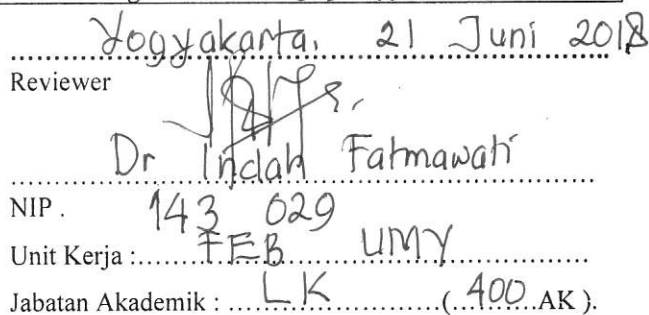 Yogyakarta, 21 Juni 2018
Reviewer
Dr Indah Fatmawati
NIP . 143 029
Unit Kerja : FEB UMY
Jabatan Akademik : LK (400 AK ).